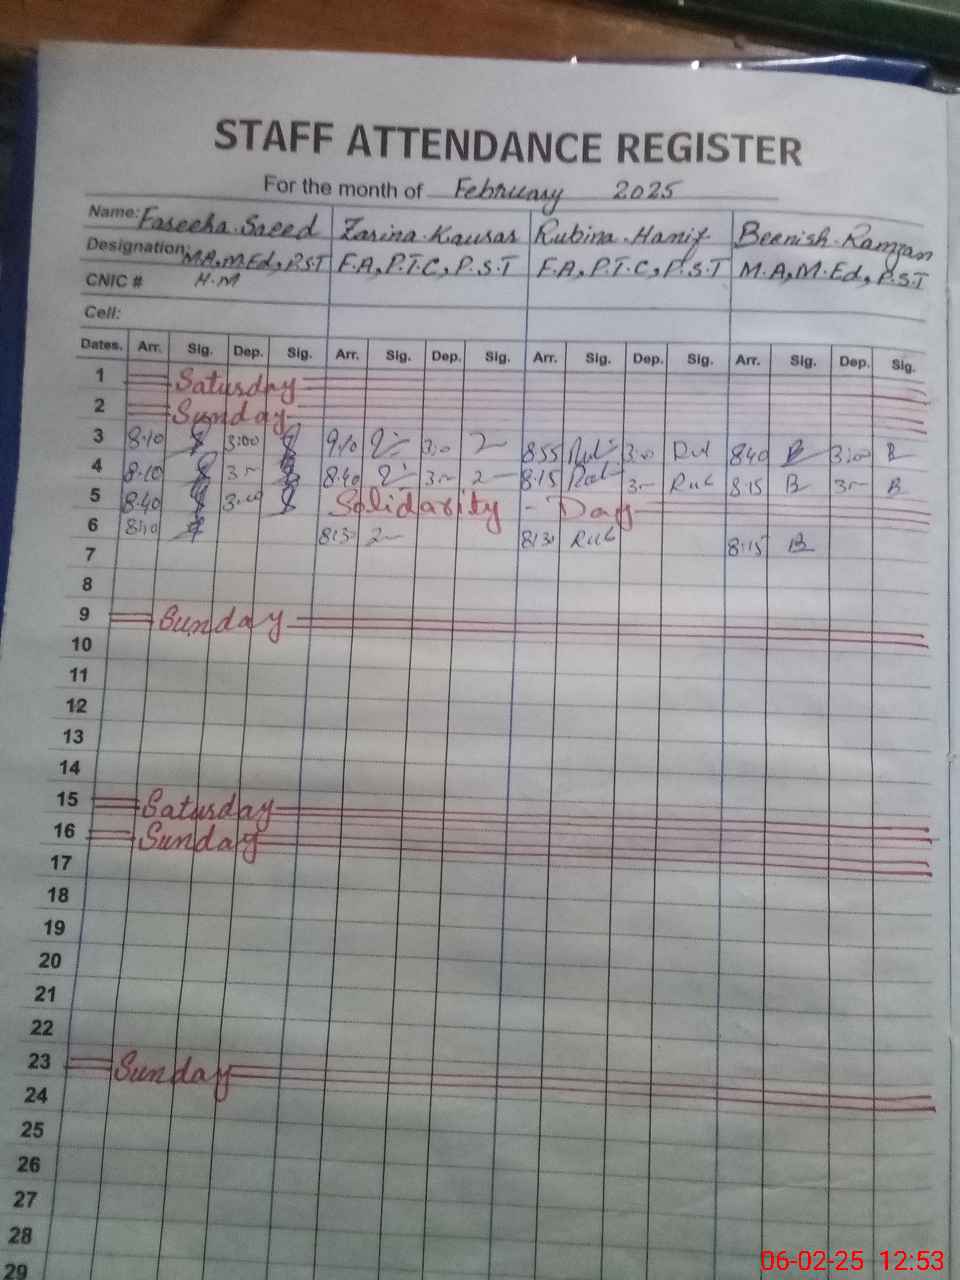 STAFF ATTENDANCE REGISTER
For the month of February 2025
Name: Faseeha Saeed Zarina Kausar Rubina Hanif Beenish Ramzan
Designation: M.A, M.Ed, P.S.T F.A, P.T.C, P.S.T F.A, P.T.C, P.S.T M.A, M.Ed, P.S.T
CNIC # H.M
Cell:
Dates. Arr. Sig. Dep. Sig. Arr. Sig. Dep. Sig. Arr. Sig. Dep. Sig. Arr. Sig. Dep. Sig.
1 Saturday
2 Sunday
3 8:10 3:00 9:10 3:0 8:55 3:0 8:40 B 3:00 B
4 8:10 8:40 8:15 8:15 B B
5 8:40 3:00 Solidarity - Day
6 8:10 8:30 8:30 8:15 B
7
8
9 Sunday
10
11
12
13
14
15 Saturday
16 Sunday
17
18
19
20
21
22
23 Sunday
24
25
26
27
28
29
06-02-25 12:53